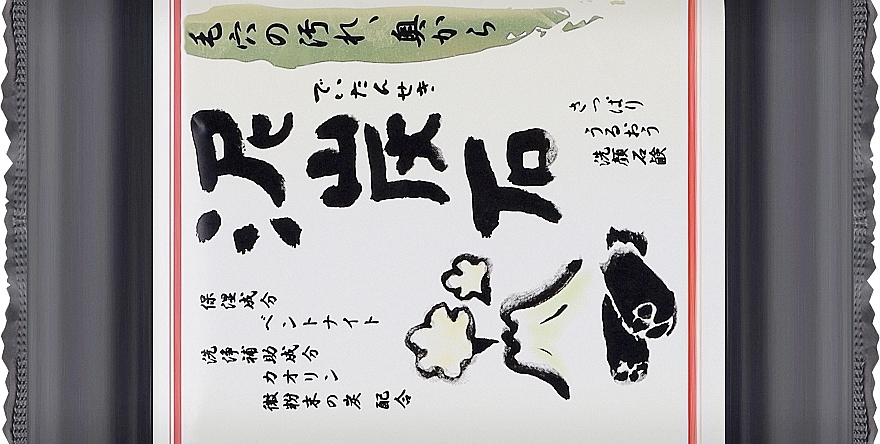 毛穴の汚れ、奥から
でいたんせき
泥炭石
さっぱり
うるおう
洗顔石鹸
保湿成分
ベントナイト
洗浄補助成分
カオリン
微粉末の炭 配合